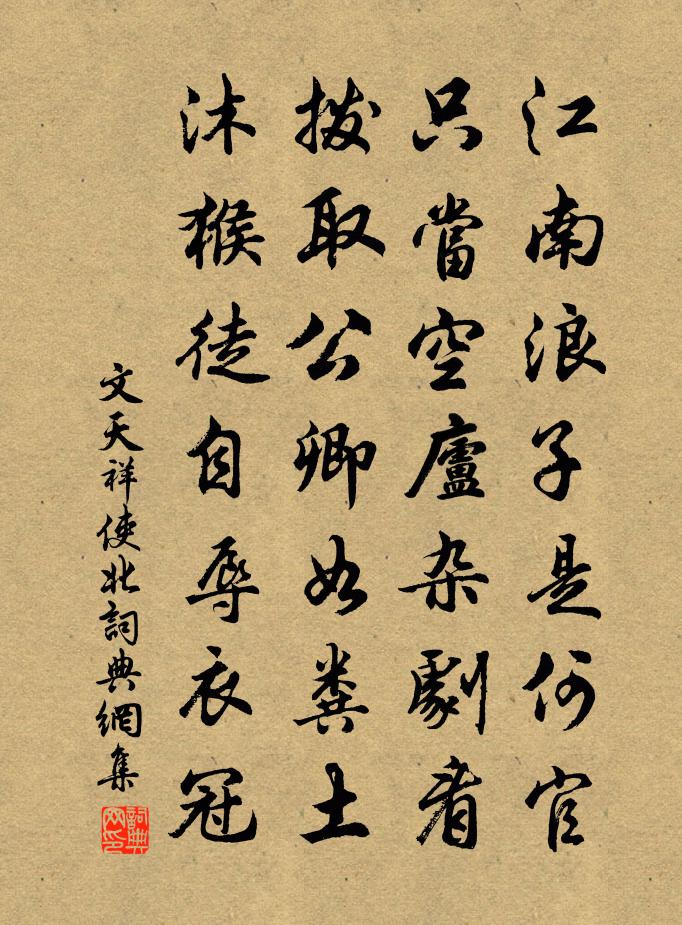 江南浪子是何官
只當空廬杂劇看
撥取公卿如糞土
沐猴徒自辱衣冠
文天祥使北詞典網集
詞典網印